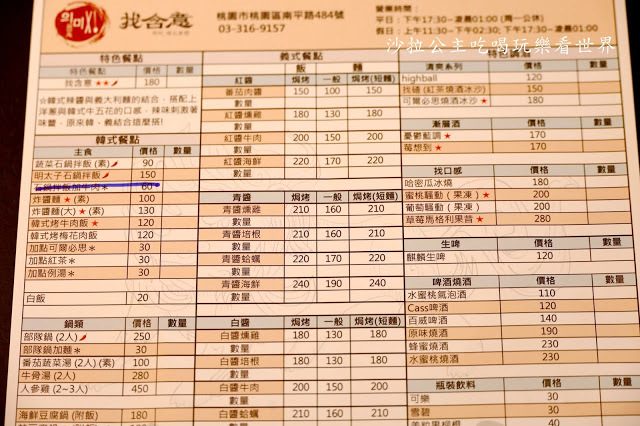 의미X!
找含意
桃園市桃園區南平路484號
03-316-9157
營業時間：
平日：下午17:30～凌晨01:00 (周一公休)
假日：上午11:30～下午 17:30～凌晨01:00
沙拉公主吃喝玩樂看世界
特色餐點
特色餐點 價格 數量
找含意★★ 180
☆韓式辣醬與義大利麵的結合，搭配上
洋蔥與韓式牛五花的口感，辣味刺激著
味蕾，原來韓、義結合這麼搭！
韓式餐點
主食 價格 數量
蔬菜石鍋拌飯 (素) 90
明太子石鍋拌飯 150
石鍋拌飯加牛肉＊ 60
炸醬麵★(素) 100
炸醬麵(大)★(素) 130
韓式烤牛肉飯★ 120
韓式烤梅花肉飯 120
加點可爾必思＊ 30
加點紅茶＊ 30
加點例湯＊ 30
白飯 20
鍋類 價格 數量
部隊鍋 (2人) 250
部隊鍋加麵＊ 30
番茄蔬菜湯 (2人) (素) 100
牛骨湯 (2人) 280
人參雞 (2~3人) 450
海鮮豆腐鍋 (附飯) 180
義式餐點
飯 麵
紅醬 焗烤 一般 焗烤(短麵)
番茄肉醬 150 100 150
數量
紅醬燻雞 180 130 180
數量
紅醬牛肉 200 150 200
數量
紅醬海鮮 220 170 220
數量
青醬 焗烤 一般 焗烤(短麵)
青醬燻雞 210 160 210
數量
青醬培根 210 160 210
數量
青醬蛤蠣 220 170 220
數量
青醬海鮮 240 190 240
數量
白醬 焗烤 一般 焗烤(短麵)
白醬燻雞 180 130 180
數量
白醬培根 180 130 180
數量
白醬牛肉 200 150 200
數量
白醬蛤蠣 210 160 210
特色調酒
清爽系列 價格 數量
highball 120
找碴 (紅茶燒酒冰沙) 150
可爾必思燒酒冰沙★ 150
漸層酒 價格 數量
憂鬱藍調★ 170
莓想到★ 170
找口感 價格 數量
哈密瓜冰燒 180
蜜桃騷動 (果凍)★ 200
葡萄騷動 (果凍)★ 200
草莓馬格利果昔★ 280
生啤 價格 數量
麒麟生啤 120
啤酒燒酒 價格 數量
水蜜桃氣泡酒 110
Cass啤酒 120
百威啤酒 140
原味燒酒 190
蜂蜜燒酒 230
水蜜桃燒酒 230
瓶裝飲料 價格 數量
可樂 30
雪碧 30